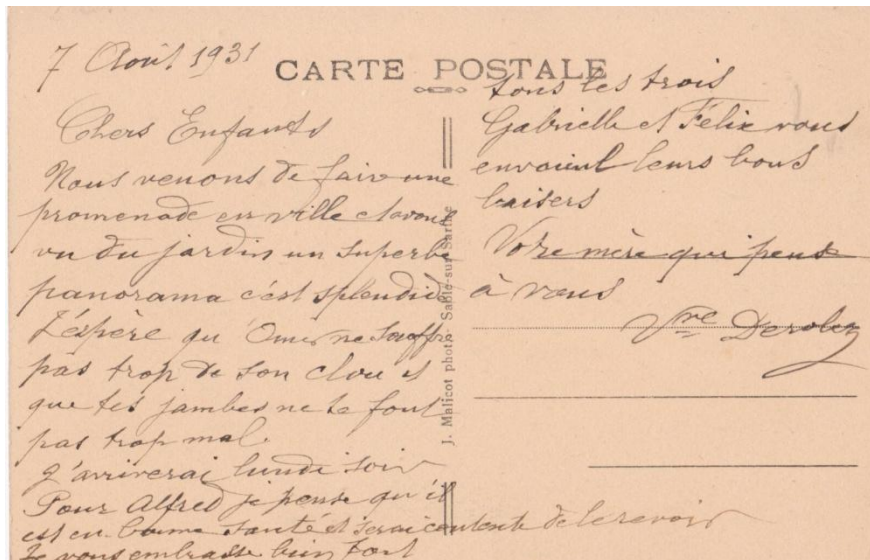 7 Août 1931
CARTE POSTALE
Chers Enfants
Nous venons de faire une
promenade en ville et avons
vu du jardin un superbe
panorama c'est splendide
J'espère qu'Omer ne souffre
pas trop de son clou et
que tes jambes ne te font
pas trop mal.
J'arriverai lundi soir
Pour Alfred je pense qu'il
est en bonne santé et serai contente de le revoir
Je vous embrasse bien fort
tous les trois
Gabrielle et Félix vous
envoient leurs bons
baisers
Votre mère qui pense
à vous
Vve Derolez
J. Malicot photo. Sablé-sur-Sarthe